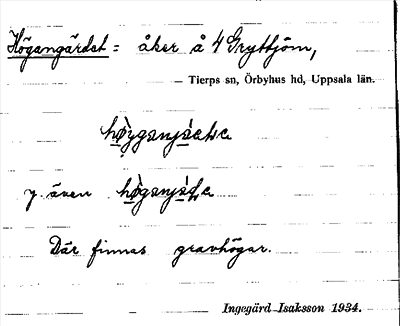 Högangärdet = åker å 4 Gryttjom,
Tierps sn, Örbyhus hd, Uppsala län.
y. även
Där finnas gravhögar.
Ingegärd Isaksson 1934.